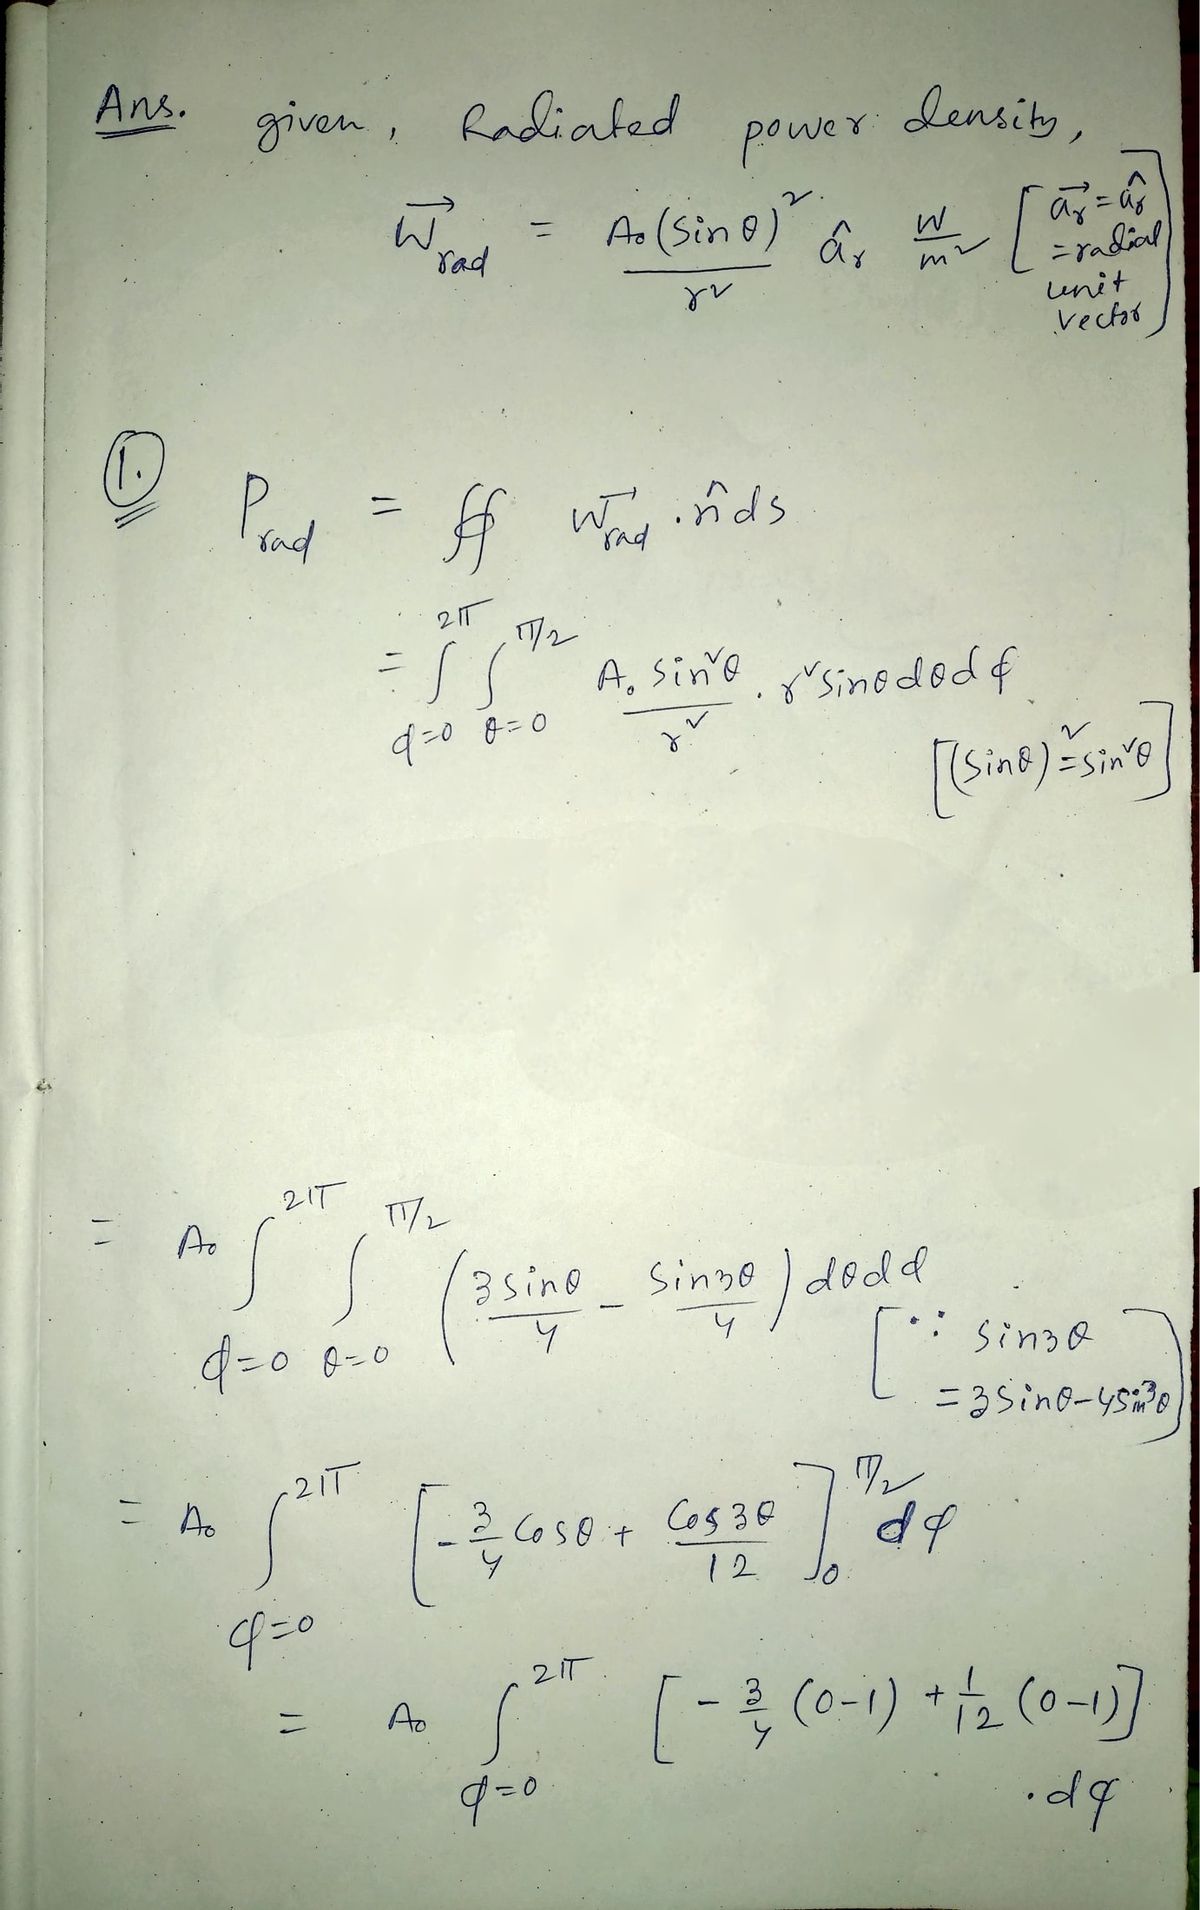 Ans. given, Radiated power density,
W⃗rad = A₀(Sinθ)² / r² âr W/m² [a⃗r = âr = radial unit vector]
1. Prad = ∯ W⃗rad . n̂ ds
= ∫φ=0^2π ∫θ=0^π/2 A₀ sin²θ / r² . r² sinθ dθ dφ
[(Sinθ)² = sin²θ]
= A₀ ∫φ=0^2π ∫θ=0^π/2 (3 sinθ / 4 - Sin3θ / 4) dθ dφ
[∵ Sin3θ = 3Sinθ - 4Sin³θ]
= A₀ ∫φ=0^2π [-3/4 Cosθ + Cos3θ / 12]₀^π/2 dφ
= A₀ ∫φ=0^2π [-3/4 (0-1) + 1/12 (0-1)] . dφ